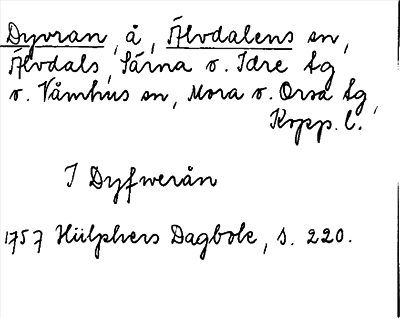 Dyvran, å, Älvdalens sn,
Älvdals, Särna o. Idre tg
o. Våmhus sn, Mora o. Orsa tg,
Kopp. l.
I Dyfwerån
1757 Hülphers Dagbok, s. 220.